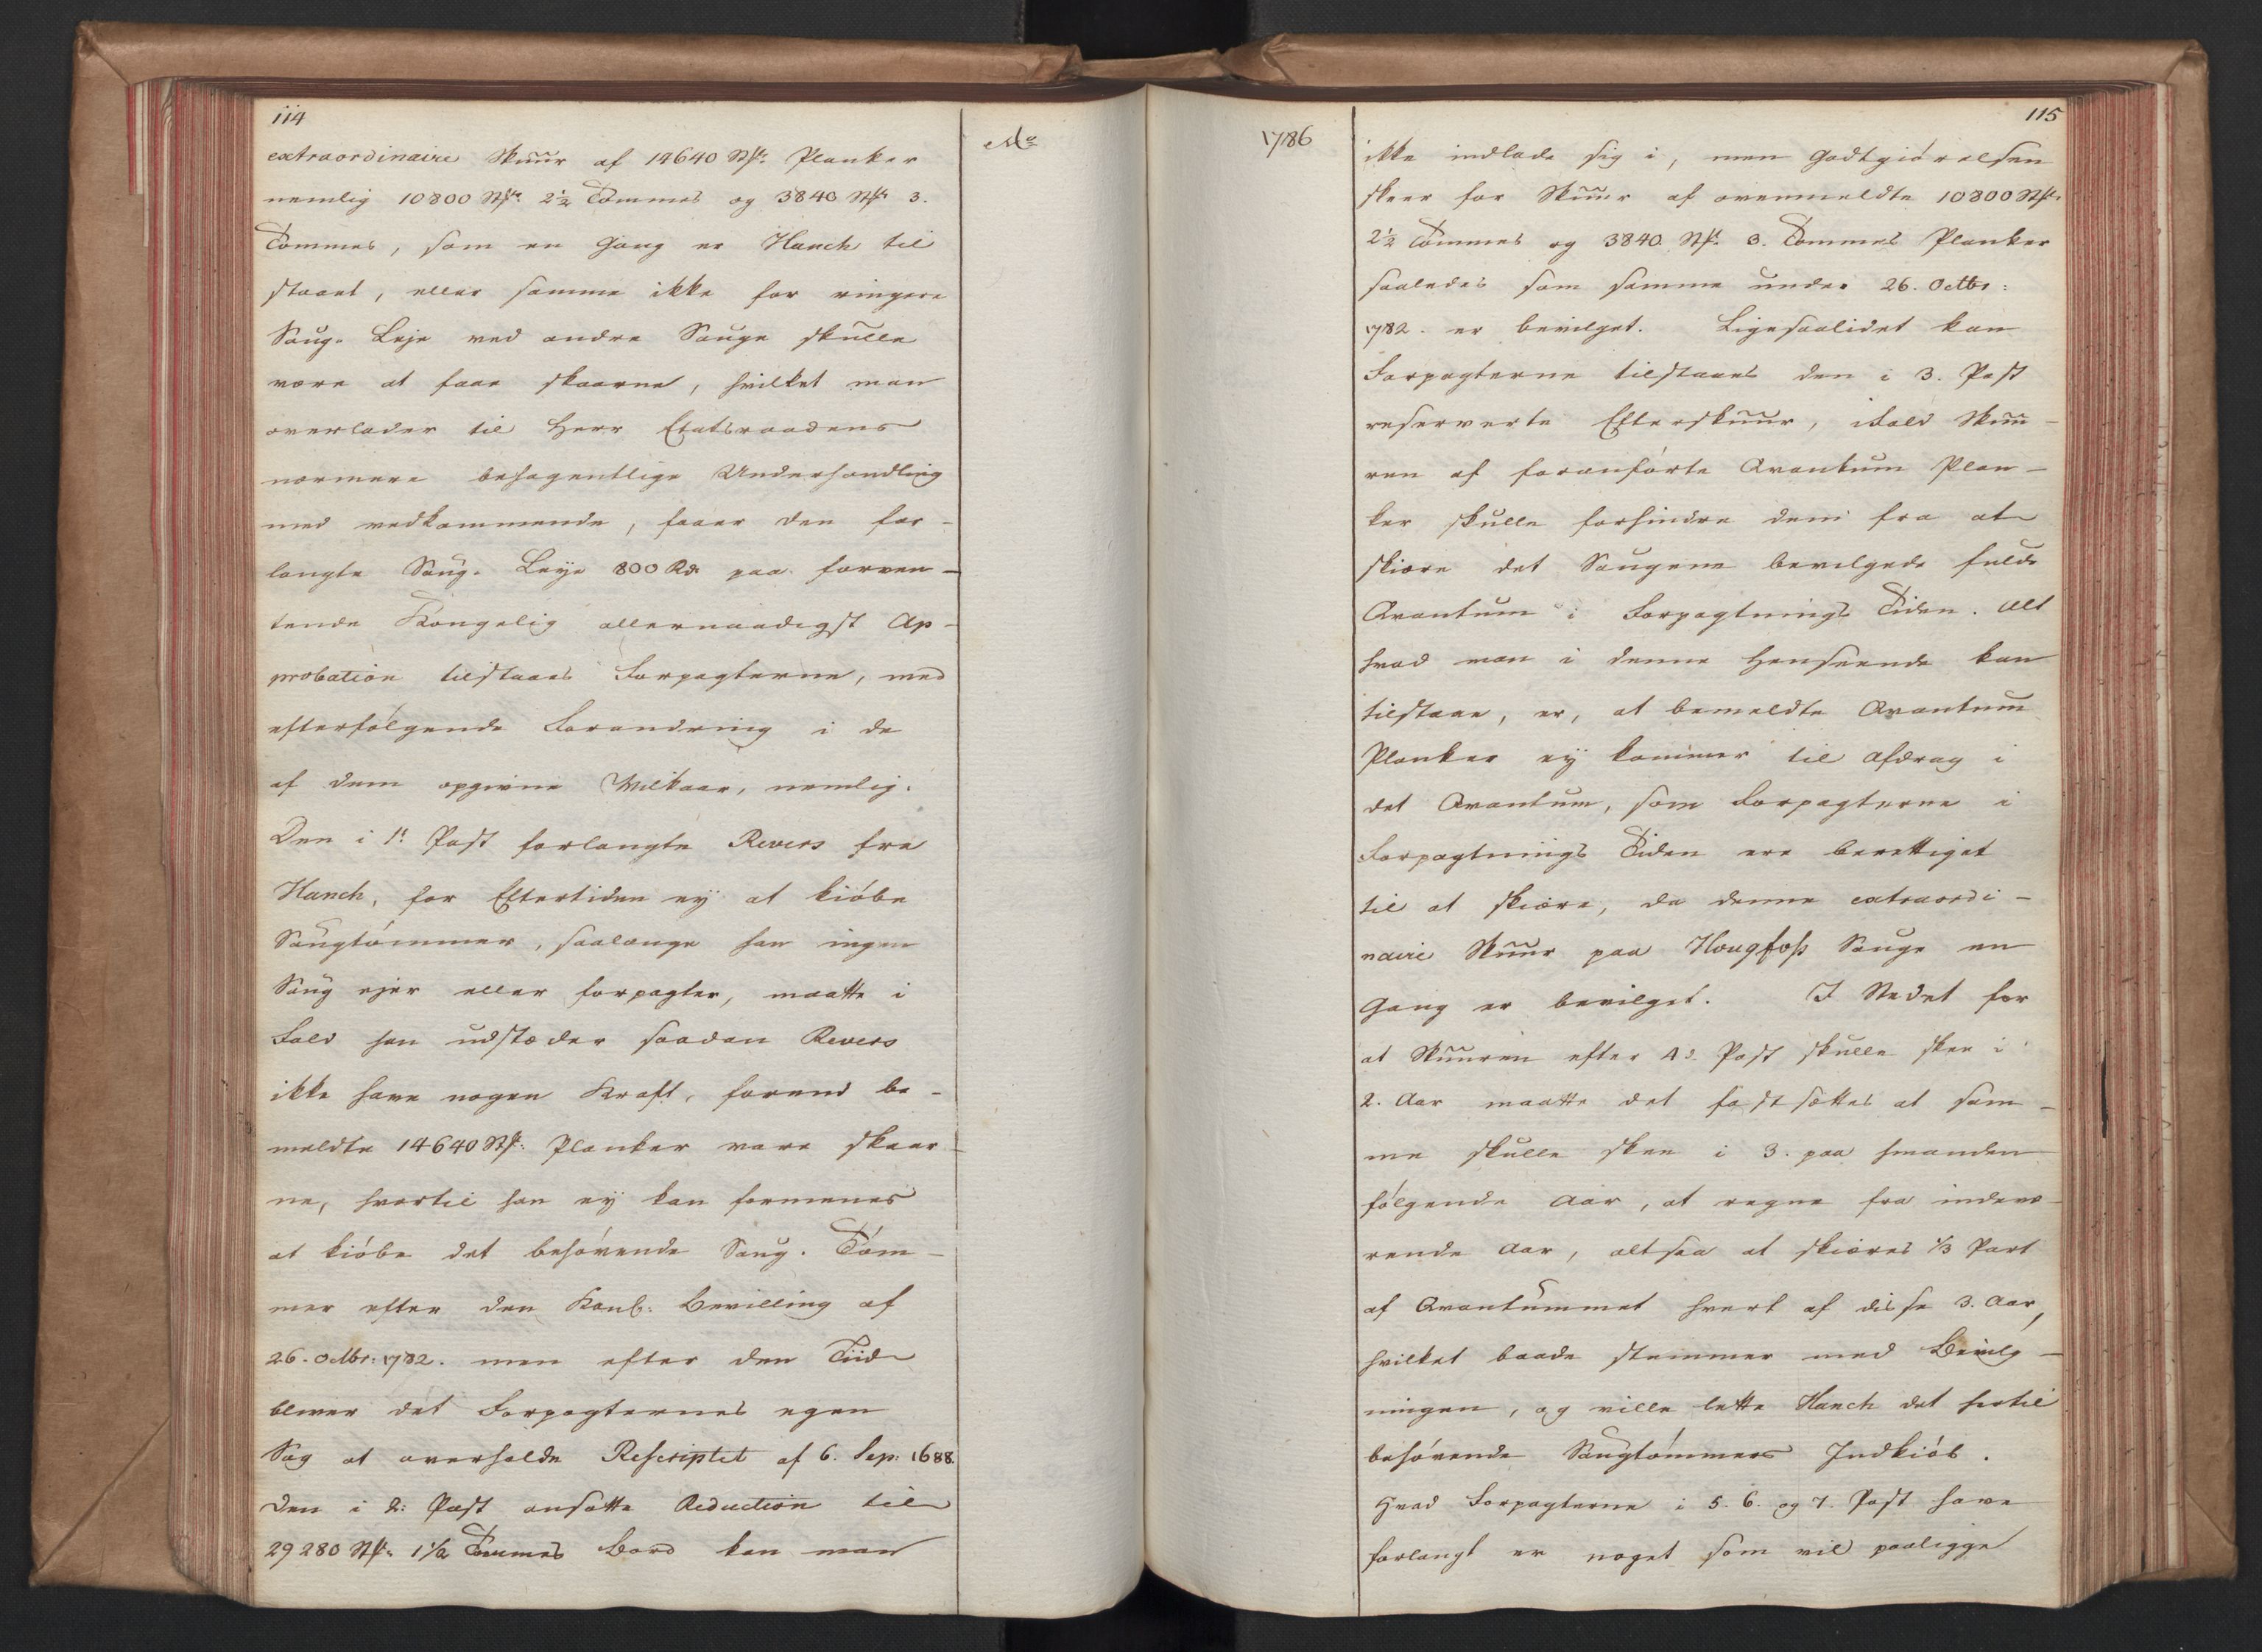 114
extraordinaire Skuur af 14640 Stk: Planker
nemlig 10800 Stk: 2½ Tommes og 3840 Stk: 3.
Tommes, som en Gang er Hanch til
staaet, eller samme ikke for ringere
Saug-Leje ved andre Sauge skulle
være at faae skaarne, hvilket man
overlader til Herr Etatsraadens
nærmere behagentlige Underhandling
med vedkommende, faaer den for-
langte Saug-Leye 800 Rd. paa forven-
tende Kongelig allernaadigst Ap-
probation tilstaaes Forpagterne, med
efterfølgende Forandring i de
af dem opgivne Vilkaar, nemlig:
Den i 1t Post forlangte Revers fra
Hanch, for Eftertiden ey at kiöbe
Saugtömmer, saalænge han ingen
Saug ejer eller forpagter, maatte i
Fald han udstæder saadan Revers
ikke have nogen Kraft, forend be-
meldte 14640 Stk: Planker vare skaar-
ne, hvortil han ey kan formenes
at kiöbe det behövende Saug-Töm-
mer efter den Kongl: Bevilling af
26. Octbr: 1782. men efter den Tiid
bliver det Forpagternes egen
Sag at overholde Rescriptet af 6. Sep: 1688.
Den i 2: Post ansatte Reduction til
29280 Stk: 1½ Tommes Bord kan man
Ao
1786
115
ikke indlade sig i, men Godtgiörelsen
skeer for Skuur af ovenmeldte 10800 Stk:
2½ Tommes og 3840. Stk: 3. Tommes Planker
saaledes som samme under 26. Octbr:
1782. er bevilget. Ligesaalidet kan
Forpagterne tilstaaes den i 3. Post
reserverte Efterskuur, ifald Skuu-
ren af foranförte Qvantum Plan-
ker skulle forhindre dem fra at
skiære det Saugene bevilgede fulde
Qvantum i Forpagtnings Tiden. Alt
hvad man i denne Henseende kan
tilstaae, er, at bemeldte Qvantum
Planker ey kommer til Afdrag i
det Qvantum, som Forpagterne i
Forpagtnings Tiden ere berettiget
til at skiære, da denne extraordi-
naire Skuur paa Hougfoss Sauge en
Gang er bevilget. I Stedet for
at Skuuren efter 4d. Post skulle skee i
2. Aar maatte det fastsættes at sam-
me skulle skee i 3. paa hinanden
fölgende Aar, at regne fra indevæ-
rende Aar, altsaa at skiæres 1/3 Part
af Qvantummet hvert af disse 3. Aar,
hvilket baade stemmer med Bevilg-
ningen, og ville lette Hanch det hertil
behövende Saugtömmers Indkiöb.
Hvad Forpagterne i 5. 6. og 7. Post have
forlangt er noget som vil paaligge